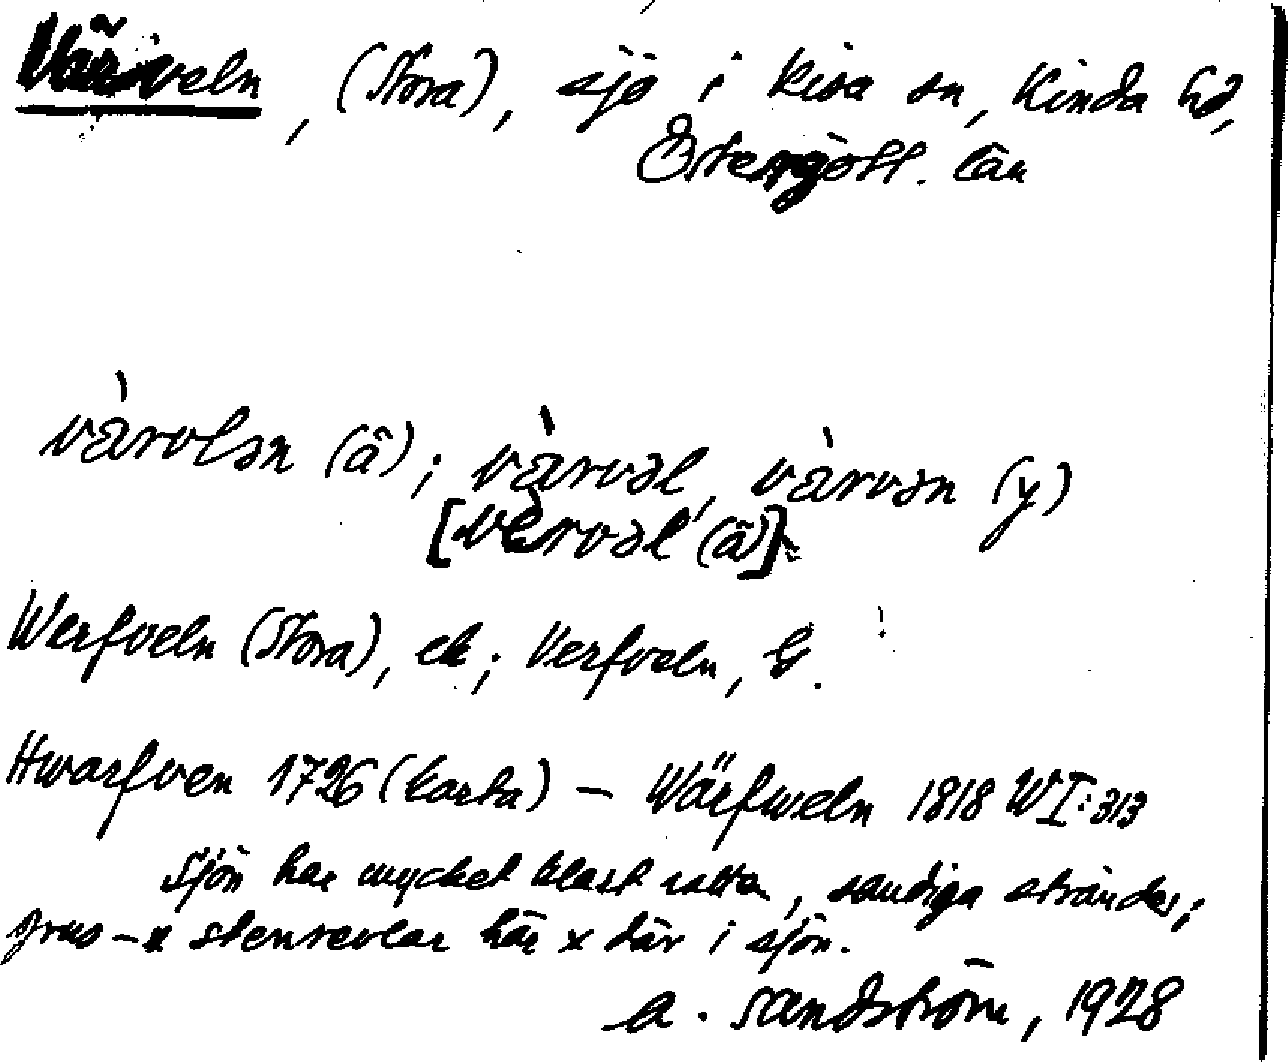 Värveln, (Stora), sjö i Kisa sn, Kinda hd,
Östergötl. län
vàrvlən (ä); vàrvəl, vàrvən (y)
[vèrvəl (ä)]
Werfveln (Stora), ek; Verfveln, G.
Hwarfven 1726 (karta) – Wärfweln 1818 WI:313
Sjön har mycket klart vatten, sandiga stränder;
grus- x stenrevlar här x där i sjön.
A. Sandström, 1928